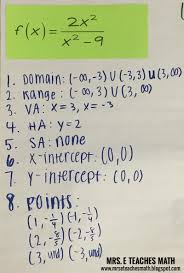 f(x) = 2x² / x² - 9
1. Domain: (-∞, -3) ∪ (-3, 3) ∪ (3, ∞)
2. Range: (-∞, 3) ∪ (3, ∞)
3. VA: x = 3, x = -3
4. HA: y = 2
5. SA: none
6. X-intercept: (0,0)
7. Y-intercept: (0,0)
8. Points:
(1, -1/4) (-1, -1/4)
(2, -8/5) (-2, -8/5)
(3, und) (-3, und)
MRS. E TEACHES MATH
www.mrseteachesmath.blogspot.com